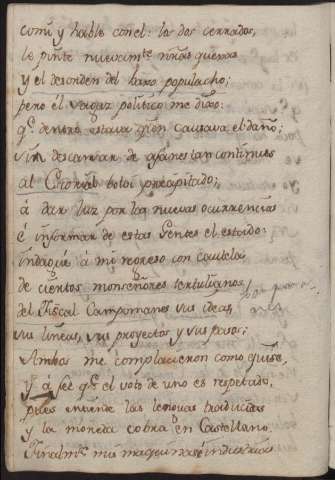 comi y hablé con el: los dos cerrados,
le pinté nuevam.te ntras quexas
y el desorden del baxo populacho;
pero el sagaz politico me dixo:
q.e dentro estava q.n causava el daño;
sin descansar de afanes tan continuos
al Criòrial bolbi precipitado;
á dar luz por las nuevas ocurrencias
é informar de estas Gentes el estado:
indagué á mi regreso con cautela,
de ciertos monseñores tertulianos,
del Fiscal Campomanes sus ideas,
sus lineas, sus proyectos y sus pasos;
Ambos me complacieron como quise,
y á feè q.e el voto de uno es respetado,
pues entiende las lenguas traducidas
y la moneda cobra en Castellano.
Finalm.te mis maquinas é industrias